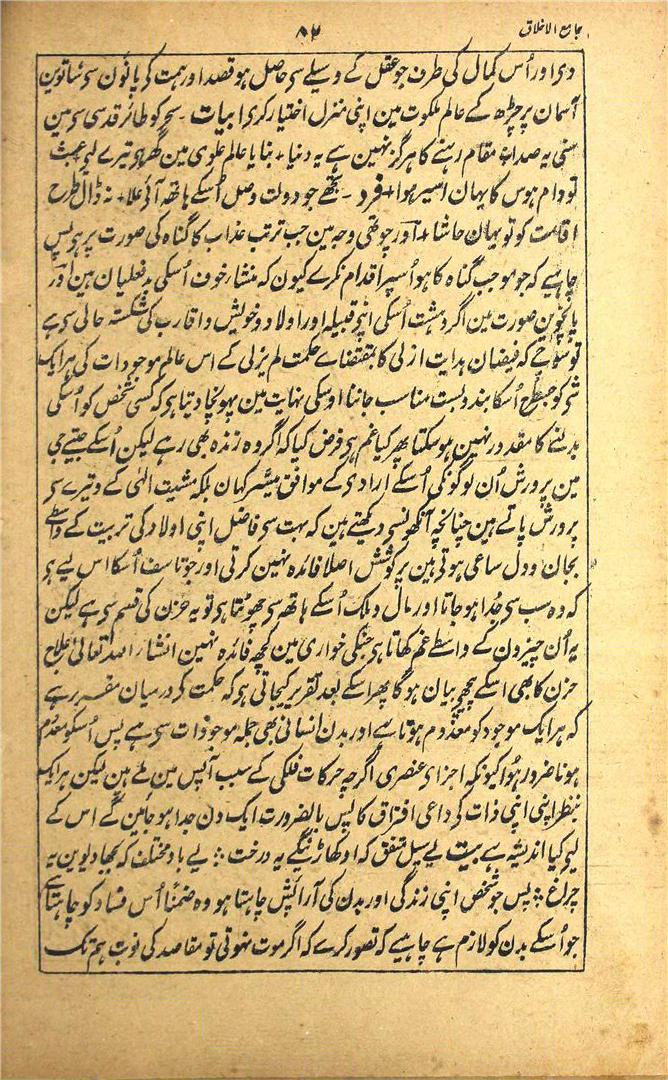 جامع الاخلاق
۸۲
دی اور اُس کمال کی طرف جو عقل کے وسیلے سی حاصل ہو قصد اور ہمت کی پانٔون سی ساتوین
آسمان پر چڑھ کے عالم ملکوت مین اپنی منزل اختیار کری ابیات ۔ سچ کو طائر قدسی سی مین
سنی یہ صدا + مقام رہنے کا ہرگز نہین ہے یہ دنیا + بنایا عالم علوی مین گھر تیرے لیے عبث
تو دام ہوس کا یہان اسیر ہوا + فرد ۔ تجھے جو دولت وصل اُسکے ہاتھ آئی علا + نہ ڈال طرح
اقامت کو تو یہان حاشا + اور چوتھی وجہ مین جب ترتب عذاب کا گناہ کی صورت پر ہو پس
چاہیے کہ جو موجب گناہ کا ہو اُسپر اقدام نکرے کیون کہ منشار خوف اُسکی بد فعلیان ہین اور
پانچوین صورت مین اگر دہشت اُسکی اپنی قبیلہ اور اولاد و خویش و اقارب کی شکستہ حالی سی ہے
تو سوچے کہ فیضان ہدایت ازلی کا بمقتضاے حکمت لم یزلی کے اس عالم موجودات کی ہر ایک
شی کو جسطرح اُسکا بند و بست مناسب جانتا اوسکی نہایت مین پہونچا دیتا ہی کہ کسی شخص کو اُسکی
بدلنے کا مقدر نہین ہو سکتا پھر کیا غم ہی فرض کیا کہ اگر وہ زندہ بھی رہے لیکن اُسکے جیتے جی
مین پرورش اُن لوگونکی اُسکے ارادی کے موافق میسر کہان بلکہ مشیت الٰہی کے وتیرے سی
پرورش پاتے ہین چنانچہ آنکھونسی دیکھتے ہین کہ بہت سی فاضل اپنی اولاد کی تربیت کے واسطے
بجان و دل ساعی ہوتی ہین پر کوشش اصلا فائدہ نہین کرتی اور جو تاسف اُسکا اس لیے ہی
کہ وہ سب سی جُدا ہو جاتا اور مال و ملک اُسکے ہاتھ سی چھوٹتا ہی تو یہ حزن کی قسم سی ہے لیکن
یہ اُن چیزون کے واسطے غم کھاتا ہی جنکی خواری مین کچھ فائدہ نہین انشار اللہ تعالیٰ علاج
حزن کا بھی اسکے پیچھو بیان ہو گا پھر اسکے بعد تقریر کیجاتی ہی کہ حکمت کی درمیان مقرر ہے
کہ ہر ایک موجود کو معدوم ہوتا ہے اور بدن انسانی بھی جملہ موجودات سی ہے پس اُسکو معدوم
ہونا ضرور ہوا کیونکہ اجزای عنصری اگرچہ حرکات فلکی کے سبب آپس مین ملے ہین لیکن ہر ایک
بنظر اپنی اپنی ذات کی داعی افتراق کا پس بالضرورت ایک دن جدا ہو جائین گے اس کے
لیے کیا اندیشہ ہے بیت بے سیل متفق کہ اوکھاڑینگے یہ درخت ؞ بے باد مختلف کہ بجھا دیوین یہ
چراغ ؞ پس جو شخص اپنی زندگی اور بدن کی آرائش چاہتا ہو وہ ضمنًا اُس فساد کو چاہتا ہے
جو اُسکے بدن کو لازم ہے چاہیے کہ تصور کرے کہ اگر موت نہوتی تو مقاصد کی نوبت ہم تک